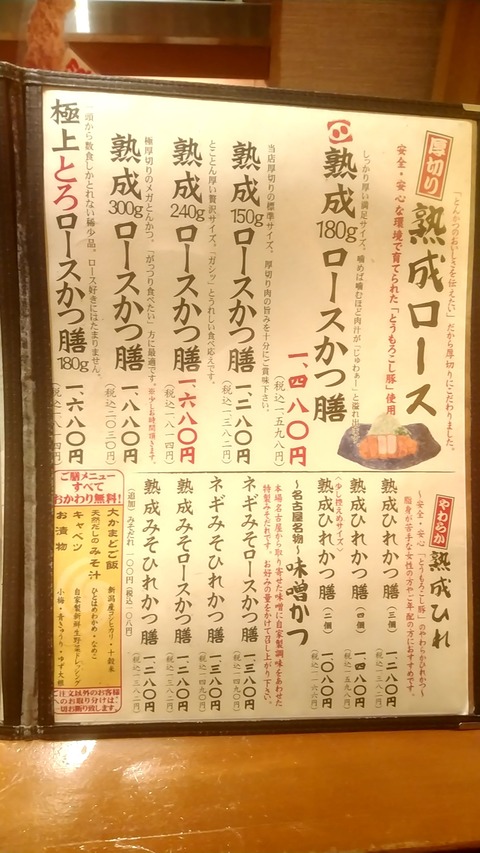 「とんかつのおいしさを伝えたい」だから厚切りにこだわりました。
厚切り 熟成ロース
安全・安心な環境で育てられた「とうもろこし豚」使用
しっかり厚い満足サイズ。噛めば噛むほど肉汁が「じゅわぁー」と溢れ出
熟成180gロースかつ膳
一、四八〇円
(税込一、五九八円)
当店厚切りの標準サイズ。厚切り肉の旨みを十分にご賞味下さい。
熟成150gロースかつ膳
一、二八〇円
(税込一、三八二円)
とことん厚い贅沢サイズ。「ガシッ」とうれしい食べ応えです。
熟成240gロースかつ膳
一、六八〇円
(税込一、八一四円)
極厚切りのメガとんかつ。「がっつり食べたい」方に最適です。※少しお時間頂きます。
熟成300gロースかつ膳
一、八八〇円
(税込二、〇三〇円)
一頭から数食しかとれない稀少品。ロース好きにはたまりません。
極上とろロースかつ膳180g
一、六八〇円
(税込一、八一四円)
やわらか 熟成ひれ
～安全・安心「とうもろこし豚」のやわらかひれかつ～
脂身が苦手な女性の方やご年配の方におすすめです。
熟成ひれかつ膳(三個) 一、二八〇円
(税込一、三八二円)
熟成ひれかつ膳(四個) 一、四八〇円
(税込一、五九八円)
〈少し控えめサイズ〉
熟成ひれかつ膳(二個) 一、〇八〇円
(税込一、一六六円)
～名古屋名物～味噌かつ
本場名古屋から取り寄せた味噌に自家製調味をあわせた
特製みそだれです。お好みの量をかけて召し上がり下さい。
ネギみそロースかつ膳 一、三八〇円
(税込一、四九〇円)
ネギみそひれかつ膳 一、三八〇円
(税込一、四九〇円)
熟成みそロースかつ膳 一、二八〇円
(税込一、三八二円)
熟成みそひれかつ膳 一、二八〇円
(税込一、三八二円)
(追加)みそだれ 一〇〇円(税込一〇八円)
ご膳メニュー
すべて
おかわり無料!
大かまどご飯
新潟産コシヒカリ・十穀米
天然だしのみそ汁
ひとはめわかめ・なめこ
キャベツ
自家製新鮮生野菜ドレッシング
お漬物
小梅・青きゅうり・ゆず大根
ご注文以外のお客様
へのお取り分けは、
一切お断り致します。